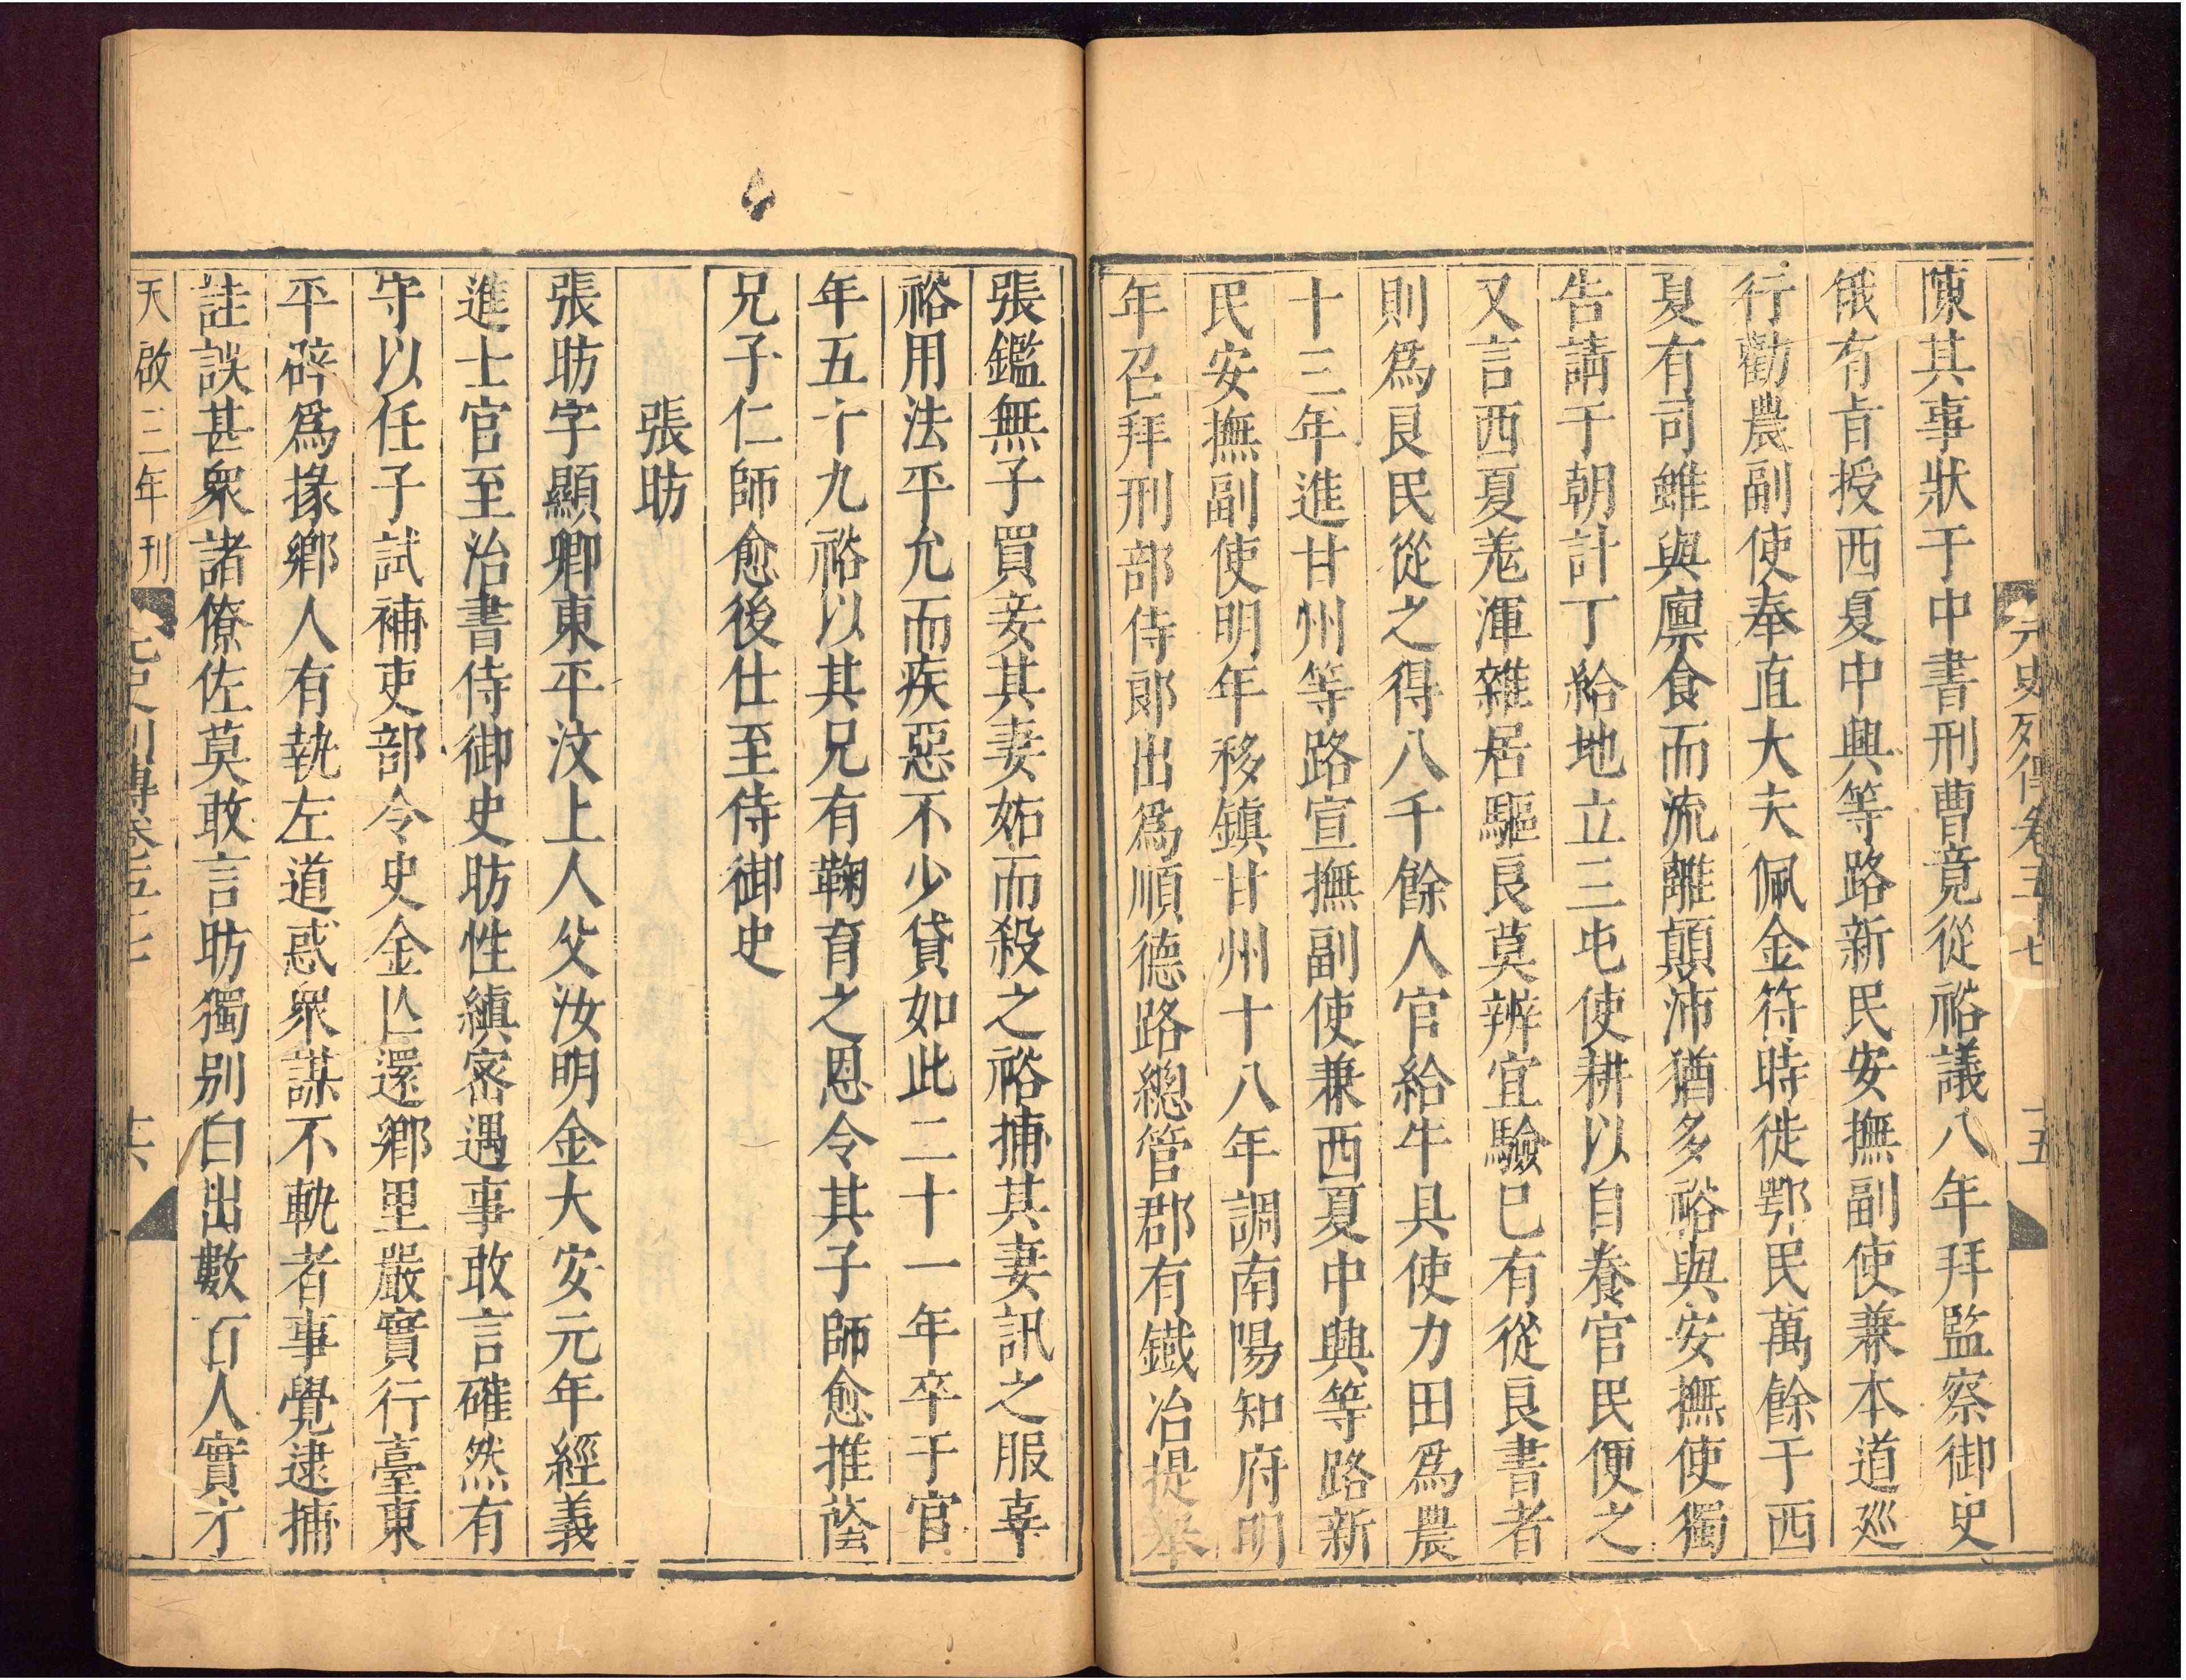 元史列傳卷五十七 十五
陳其事狀于中書刑曹竟從裕議八年拜監察御史
俄有旨授西夏中興等路新民安撫副使兼本道廵
行勸農副使奉直大夫佩金符時徙鄂民萬餘于西
夏有司雖與廩食而流離顛沛猶多裕與安撫使獨
告請于朝計丁給地立三屯使耕以自養官民便之
又言西夏羌渾雜居驅良莫辨宜驗已有從良書者
則爲良民從之得八千餘人官給牛具使力田爲農
十三年進甘州等路宣撫副使兼西夏中興等路新
民安撫副使明年移鎮甘州十八年調南陽知府明
年召拜刑部侍郎出爲順德路總管郡有鐵冶提舉
張鑑無子買妾其妻妬而殺之裕捕其妻訊之服辜
裕用法平允而疾惡不少貸如此二十一年卒于官
年五十九裕以其兄有鞠育之恩令其子師愈推蔭
兄子仁師愈後仕至侍御史
張昉
張昉字顯卿東平汶上人父汝明金大安元年經義
進士官至治書侍御史昉性縝密遇事敢言確然有
守以任子試補吏部令史金亾還鄉里嚴實行臺東
平辟爲掾鄉人有執左道惑衆謀不軌者事覺逮捕
詿誤甚衆諸僚佐莫敢言昉獨别白出數百人實才
天啟三年刊 元史列傳卷五十七 十六